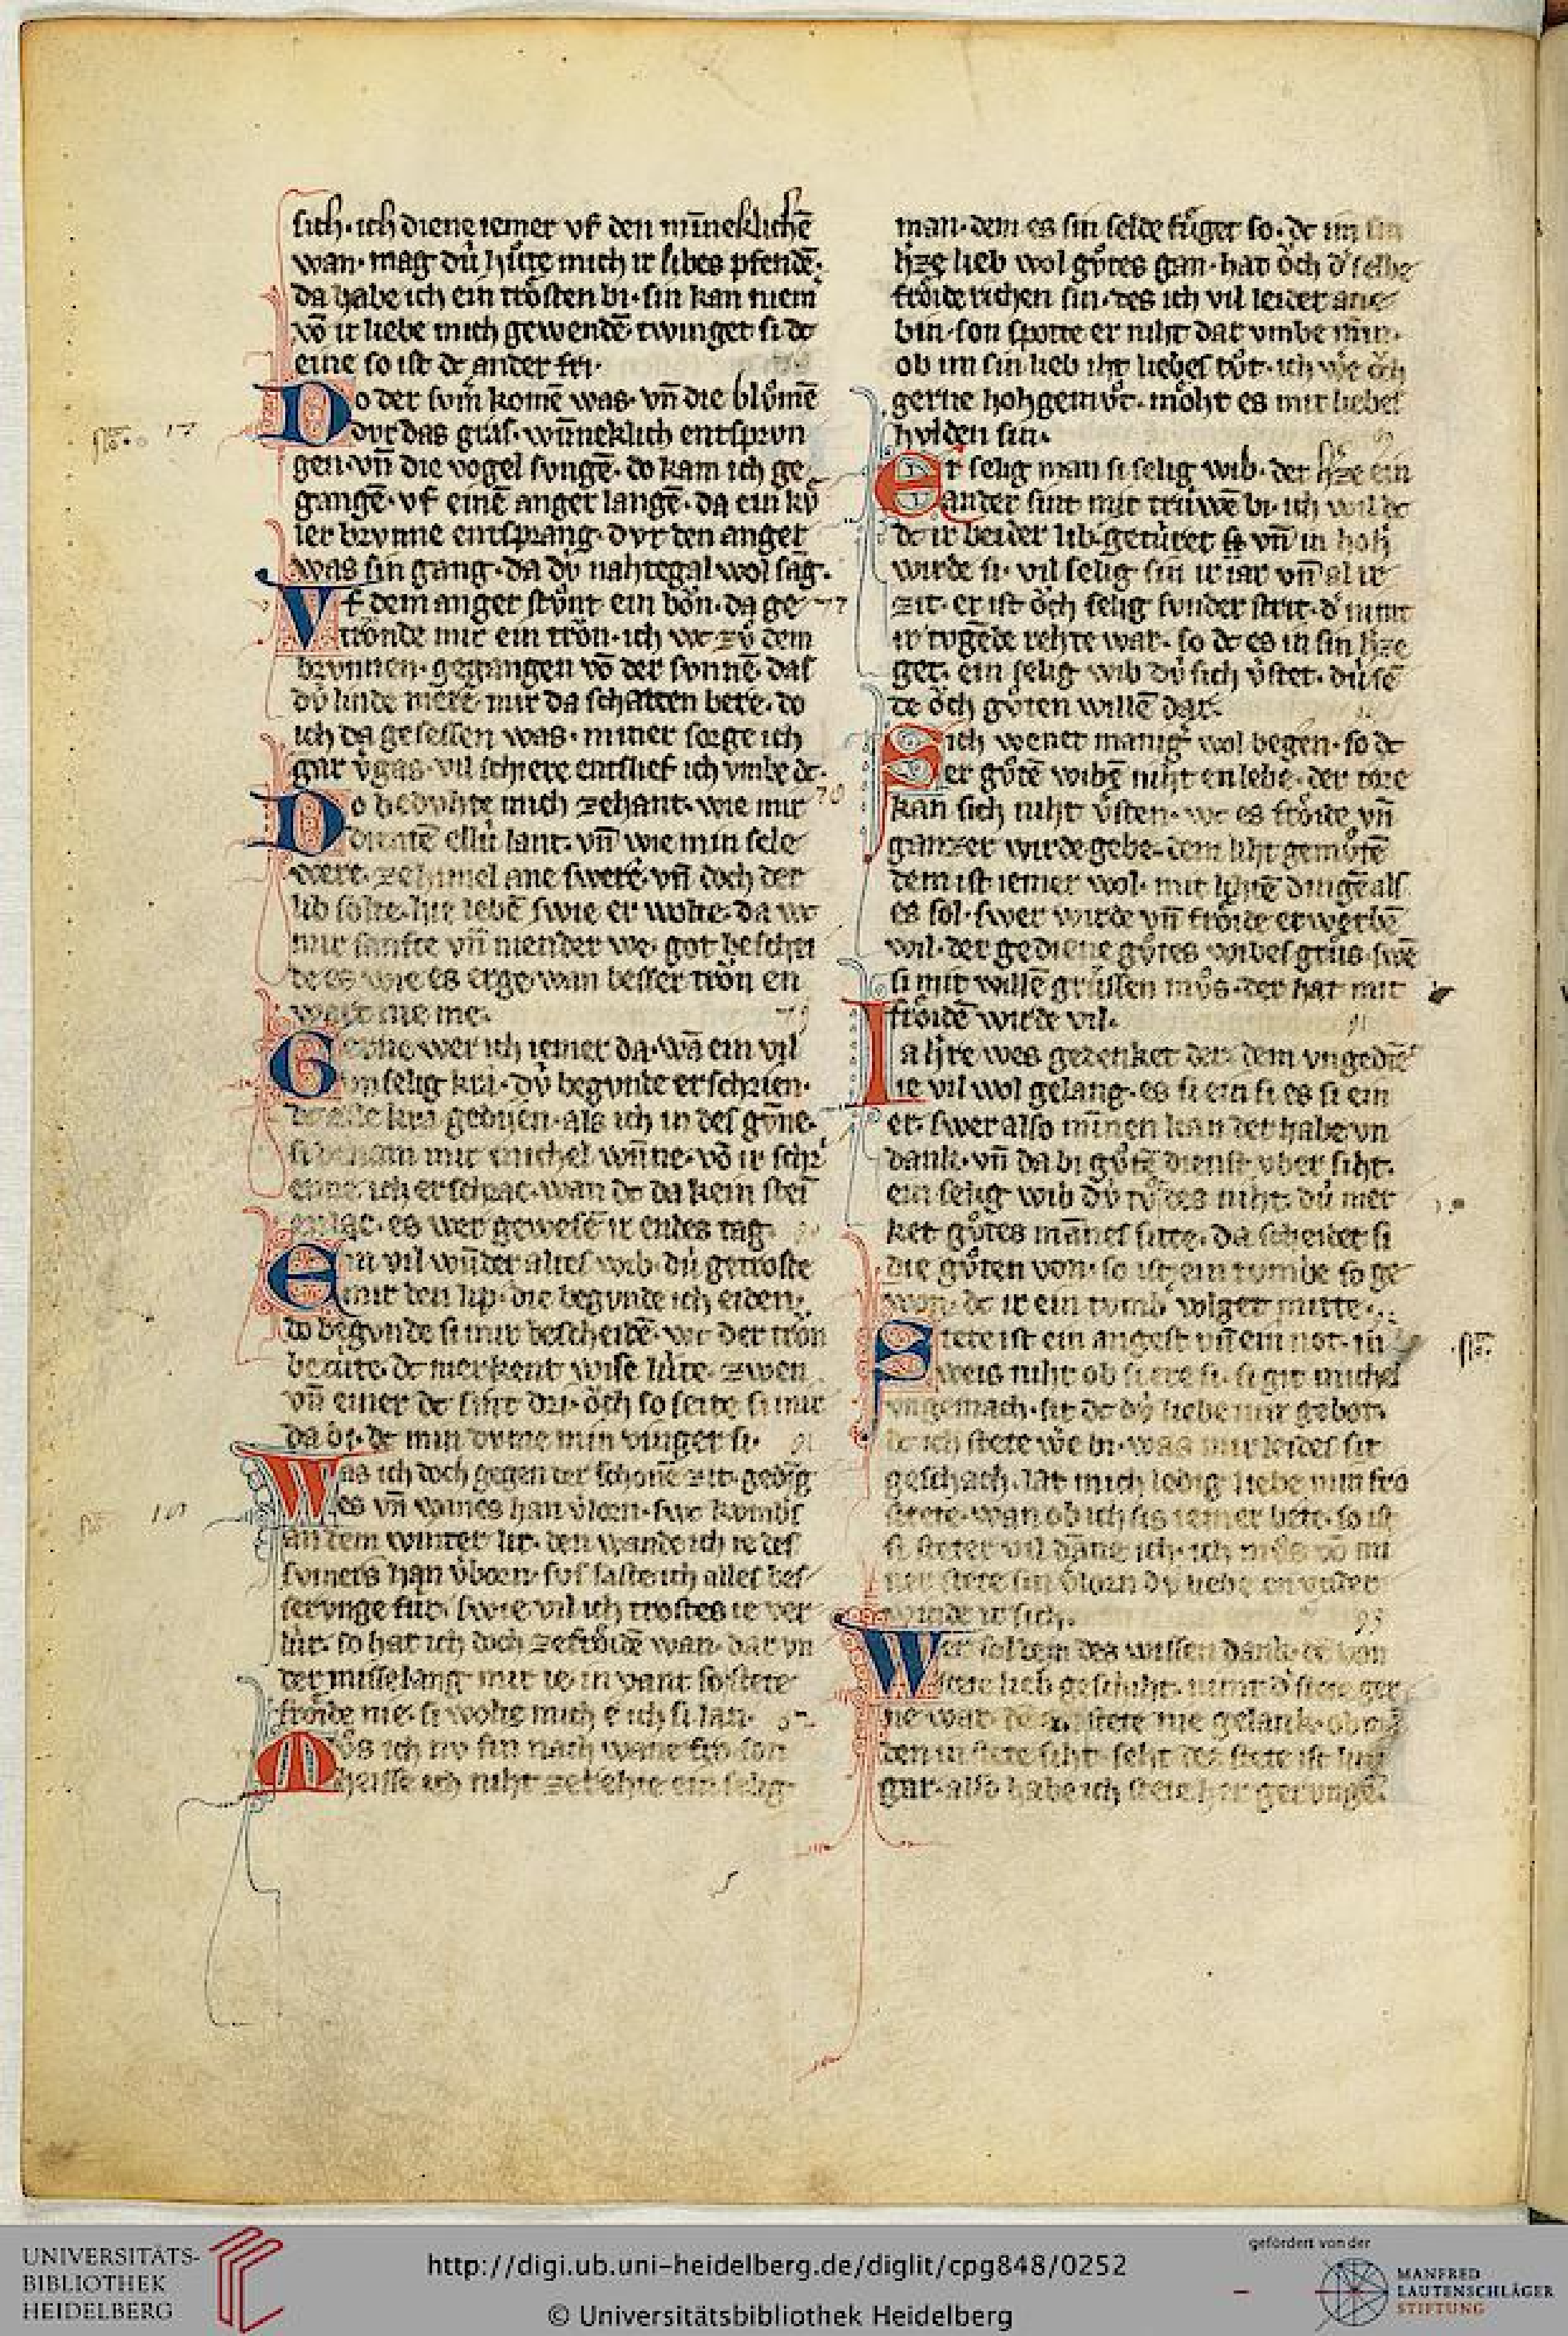 sich. ich diene iemer vf den mīneklichē
wan. mag dú hv̊te mich ir libes pfendē.
da habe ich ein trösten bi. sin kan niem̄
vō ir liebe mich gewendē. twinget si dc
eine so ist dc ander fri.
Do der svm̄ komē was. vn̄ die blv̊mē
dvr das gras. wūneklich entsprvn
gen. vn̄ die vogel svngē. do kam ich ge
gangē. vf einē anger langē. da ein kv̊
ler brvnne entsprang. dvr den anger
was sin gang. da dv́ nahtegal wol sāg.
Vf dem anger stv̊nt ein bōn. da ge
trönde mir ein trōn. ich wc zv̊ dem
brvnnen. gegangen vō der svnnē. das
dv́ linde mere. mir da schatten bere. do
ich da gesessen was. miner sorge ich
gar v̊gas. vil schiere entslief ich vmbe dc.
Do bedvhte mich zehant. wie mir
dientē ellú lant. vn̄ wie min sele
were. zehimel ane swere. vn̄ doch der
lib solte. hie lebē swie er wolte. da wc
mir sanfte vn̄ niender we. got beschei
de es wie es erge. wan besser trön en
wart nie me.
Gerne wer ich iemer da. wā ein vil
vnselig kra. dv́ begvnde erschrien.
dc alle kra gedijen. als ich in des gv̄ne.
si benam mir michel wn̄ne. vō ir schr
enne ich erschrac. wan dc da kein stei
enlac. es wer gewesē ir endes tag.
Ein vil wn̄der altes wib. dú getroste
mir den lip. die begvnde ich eiden.
do begvnde si mir bescheidē. wc der trön
bedúte. dc merkent wise lúte. zwen
vn̄ einer dc sint dri. öch so seite si mir
da bi. dc min dvme min vinger si.
Was ich doch gegen der schonē zit. gedīg
es vn̄ wānes han v̊lorn. swc kvmbs
an dem winter lit. den wande ich ie des
svmers han v̊born. svs saste ich alles bes
servnge für. swie vil ich trostes ie ver
lúr. so hat ich doch zefröidē wan. dar vn
der misselang mir ie. in vant so stete
fröide nie. si wolte mich e ich si lan.
Mv̊s ich nv sin nach wane fro. son
heisse ich niht zerehte ein selig
man. dem es sin selde fv̊get so. dc im sin
hr̄ze lieb wol gv̊tes gan. hat öch d' selbe
fröide richen sin. des ich vil leider ane
bin. son spotte er niht dar vmbe min.
ob im sin lieb iht liebes tv̊t. ich we öch
gerne hohgemv̊t. möht es mit liebes
hvlden sin.
Er selig man si selig wib. der hr̄ze ein
ander sint mit trúwē bi. ich wil dc
dc ir beider lib. getúret si vn̄ in hoh
wirde si. vil selig sin ir iar vn̄ al ir
zit. er ist öch selig svnder strit. d' nimt
ir tvgēde rehte war. so dc es in sin hr̄ze
get. ein selig wib dv́ sich v̊stet. dú sē
de öch gv̊ten willē dar.
Sich wenet maniḡ wol begen. so dc
er gv̊tē wibē niht enlebe. der tore
kan sich niht v̊sten. wc es fröide vn̄
ganzer wirde gebe. dem liht gemv̊tē
dem ist iemer wol. mit lihtē dingē als
es sol. swer wirde vn̄ fröide erwerbē
wil. der gediene gv̊tes wibes grv̊s. swē
si mit willē grüssen mv̊s. der hat mit
fröidē wirde vil.
Ia hr̄re wes gedenket der. dem vngediē
ie vil wol gelang. es si ein si es si ein
er. swer also mīnen kan der habe vn
dank. vn̄ da bi gv̊tē dienst vber siht.
ein selig wib dv́ tv̊t des niht. dú mer
ket gv̊tes mānes sitte. da scheidet si
die gv̊ten von. so ist ein tvmbe so ge
won. dc ir ein tvmb' volget mitte.
Stete ist ein angest vn̄ ein not. in
weis niht ob si ere si. si git michel
vngemach. sit dc dv́ liebe mir gebot.
dc ich stete we bi. was mir leides sit
geschach. lat mich ledig liebe min fro
stete. wan ob ich sis iemer bete. so ist
si steter vil dāne ich. ich mv̊s vō mi
ner stete sin v̊lorn dv́ liebe en vnder
winde ir sich.
Wer sol dem des wissen dank. de von
stete lieb geschiht. nimt d' stete ger
ne war. dem stete nie gelank. ob mā
den in stete siht. seht des stete ist lut
gar. also habe ich stete her gervngē.
UNIVERSITÄTS-
BIBLIOTHEK
HEIDELBERG
http://digi.ub.uni-heidelberg.de/diglit/cpg848/0252
© Universitätsbibliothek Heidelberg
gefördert von der
MANFRED
LAUTENSCHLÄGER
STIFTUNG